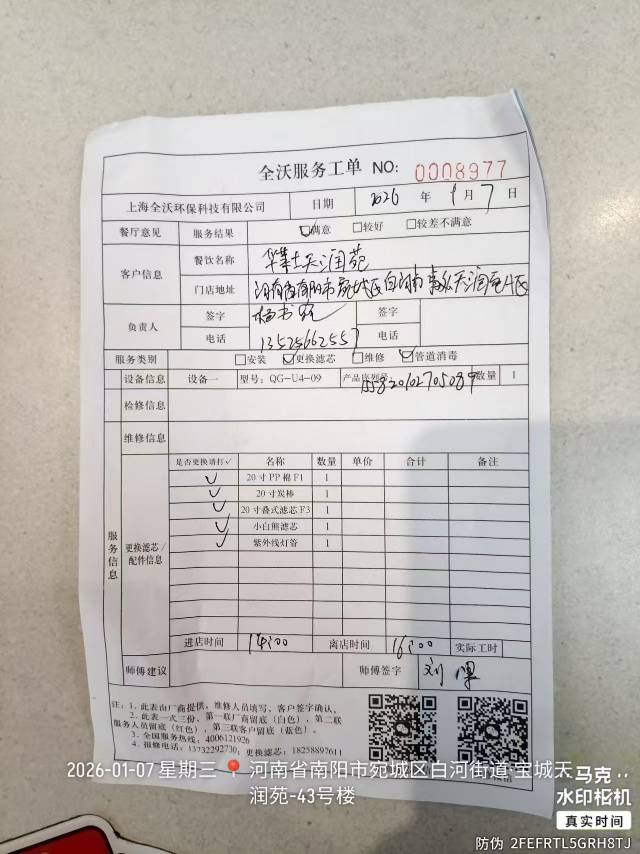 全沃服务工单 NO: 0008977
上海全沃环保科技有限公司 日期 2026 年 1 月 7 日
餐厅意见 服务结果 ☑满意 □较好 □较差不满意
客户信息 餐饮名称 华莱士天润苑
门店地址 河南省南阳市宛城区白河南 天润苑
负责人 签字 签字
电话 13525662557 电话
服务类别 □安装 ☑更换滤芯 □维修 ☑管道消毒
设备信息 设备一 型号: QG-U4-09 产品序列号: 数量 1
检修信息
服务信息
维修信息
更换滤芯/配件信息
是否更换请打✓ 名称 数量 单价 合计 备注
✓ 20寸PP棉F1 1
✓ 20寸炭棒 1
✓ 20寸叠式滤芯F3 1
✓ 小白熊滤芯 1
✓ 紫外线灯管 1
进店时间 14:00 离店时间 16:00 实际工时
师傅建议 师傅签字 刘
注: 1. 此表由厂商提供, 维修人员填写、客户签字确认。
2. 此表一式三份, 第一联厂商留底(白色), 第二联
服务人员留底(红色), 第三联客户留底(蓝色)。
3. 全国服务热线: 4006121926
4. 报修电话: 13732292730; 更换滤芯: 18258897611
2026-01-07 星期三 河南省南阳市宛城区白河街道·宝城天
润苑-43号楼
马克
水印相机
真实时间
防伪 2FEFRTL5GRH8TJ